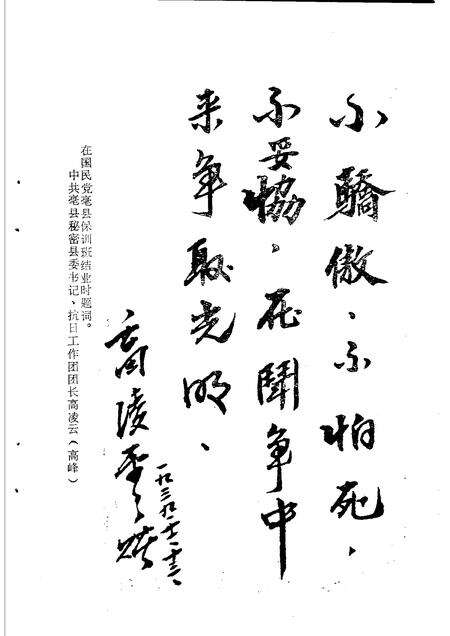 不驕傲、不怕死，
不妥協，在鬥争中
来争取光明、
高凌雲
一九三九、十一、十三、
在国民党亳县保训班结业时题词。
中共亳县秘密县委书记、抗日工作团团长高凌云（高峰）